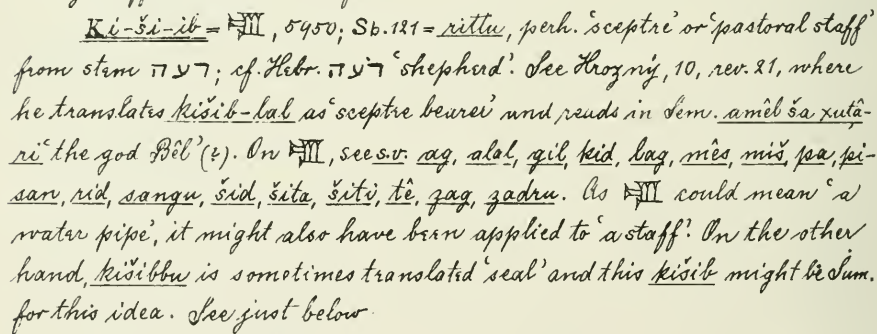 Ki-ši-ib = 𒋃, 5950; Sb. 121 = rittu, perh. 'sceptre' or 'pastoral staff'
from stem רעה; cf. Hebr. רעה 'shepherd'. See Hrozný, 10, rev. 21, where
he translates kišib-lal as 'sceptre bearer' und reads in Sem. amêl ša xutâ-
ri 'the god Bêl' (?). On 𒋃, see s.v. ag, alal, gil, kid, lag, mês, miš, pa, pi-
san, rid, sangu, šid, šita, šiti, tê, zag, zadru. As 𒋃 could mean 'a
water pipe', it might also have been applied to 'a staff'. On the other
hand, kišibbu is sometimes translated 'seal' and this kišib might be Sum.
for this idea. See just below.